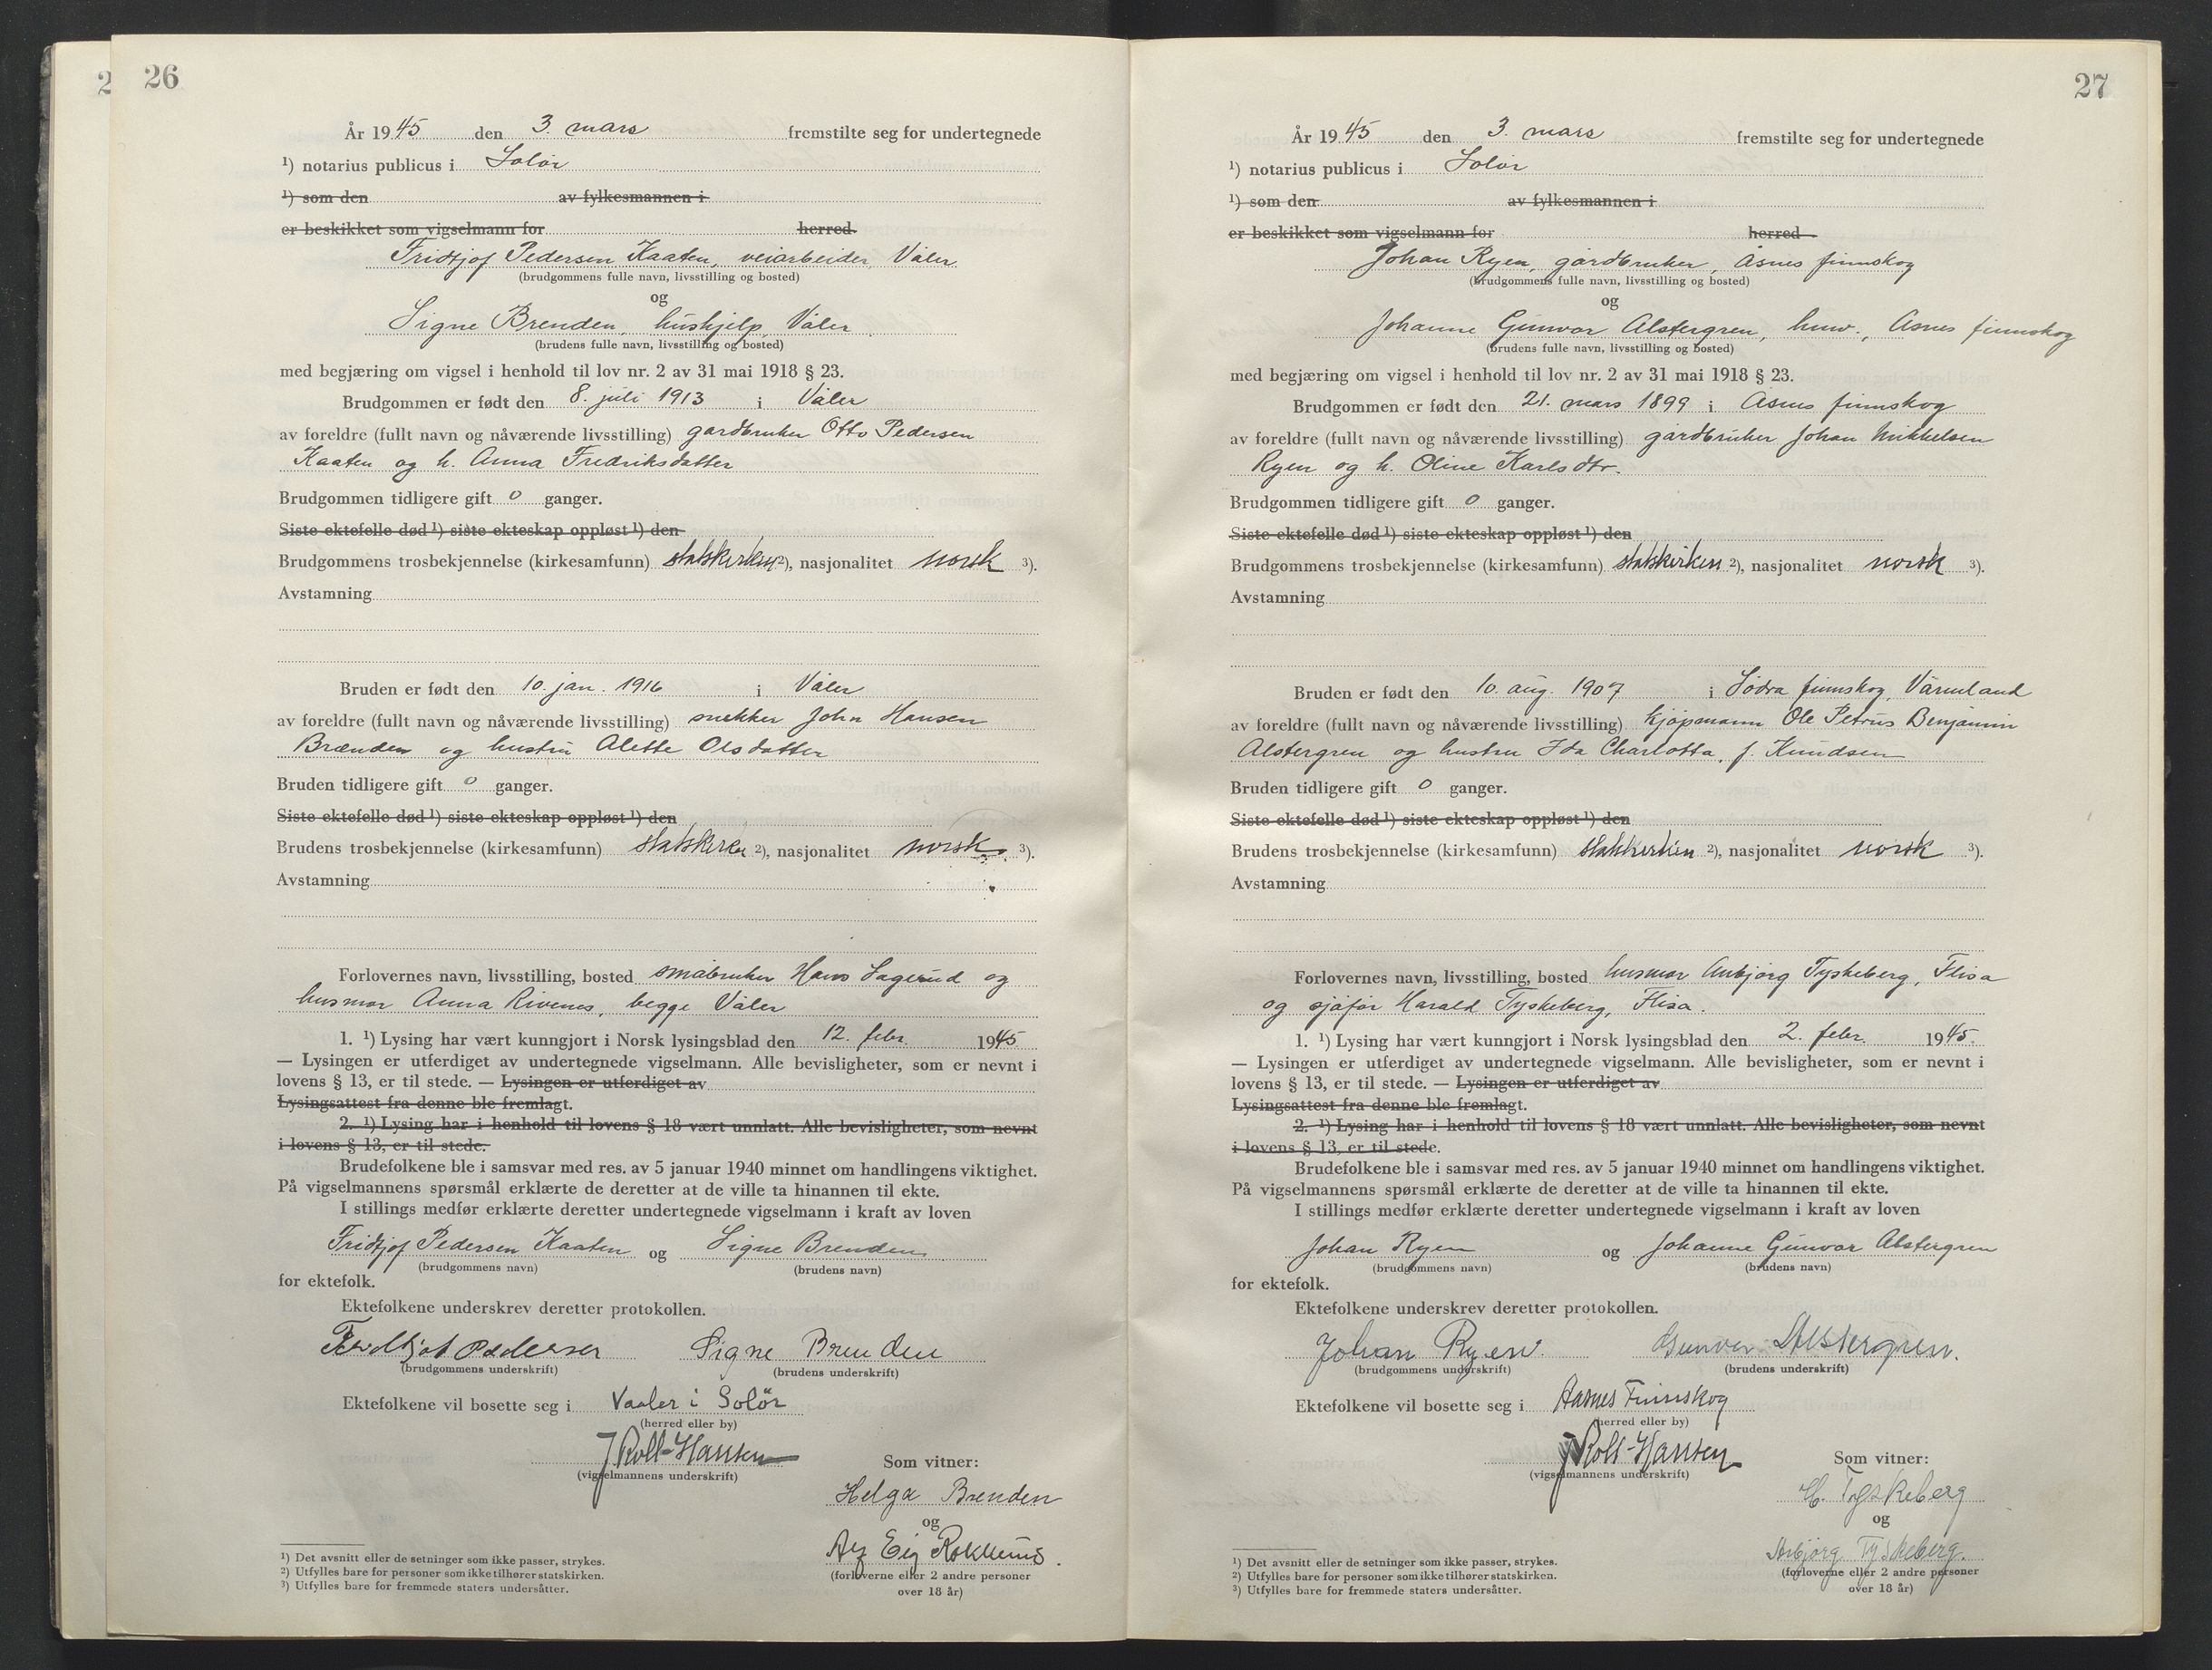 26
År 1945 den 3. mars fremstilte seg for undertegnede
¹) notarius publicus i Solør
¹) som den av fylkesmannen i
er beskikket som vigselmann for herred.
Fridtjof Pedersen Kaaten, veiarbeider, Våler
(brudgommens fulle navn, livsstilling og bosted)
og
Signe Brenden, hushjelp, Våler
(brudens fulle navn, livsstilling og bosted)
med begjæring om vigsel i henhold til lov nr. 2 av 31 mai 1918 § 23.
Brudgommen er født den 8. juli 1913 i Våler
av foreldre (fullt navn og nåværende livsstilling) gardbruker Otto Pedersen
Kaaten og h. Anna Fredriksdatter
Brudgommen tidligere gift 0 ganger.
Siste ektefelle død ¹) siste ekteskap oppløst ¹) den
Brudgommens trosbekjennelse (kirkesamfunn) statskirken ²), nasjonalitet norsk ³).
Avstamning
Bruden er født den 10. jan. 1916 i Våler
av foreldre (fullt navn og nåværende livsstilling) snekker John Hansen
Brænden og hustru Alette Olsdatter
Bruden tidligere gift 0 ganger.
Siste ektefelle død ¹) siste ekteskap oppløst ¹) den
Brudens trosbekjennelse (kirkesamfunn) statskirke ²), nasjonalitet norsk ³).
Avstamning
Forlovernes navn, livsstilling, bosted småbruker Hans Sagerud og
husmor Anna Rivenes, begge Våler
1. ¹) Lysing har vært kunngjort i Norsk lysingsblad den 12. febr. 1945
— Lysingen er utferdiget av undertegnede vigselmann. Alle bevisligheter, som er nevnt i
lovens § 13, er til stede. — Lysingen er utferdiget av
Lysingsattest fra denne ble fremlagt.
2. ¹) Lysing har i henhold til lovens § 18 vært unnlatt. Alle bevisligheter, som nevnt
i lovens § 13, er til stede.
Brudefolkene ble i samsvar med res. av 5 januar 1940 minnet om handlingens viktighet.
På vigselmannens spørsmål erklærte de deretter at de ville ta hinannen til ekte.
I stillings medfør erklærte deretter undertegnede vigselmann i kraft av loven
Fridtjof Pedersen Kaaten og Signe Brenden
(brudgommens navn) (brudens navn)
for ektefolk.
Ektefolkene underskrev deretter protokollen.
Fridtjof Pedersen Signe Brenden
(brudgommens underskrift) (brudens underskrift)
Ektefolkene vil bosette seg i Vaaler i Solör
(herred eller by)
J Roll-Hansen
(vigselmannens underskrift)
Som vitner:
Helga Brenden
og
(forloverne eller 2 andre personer
over 18 år)
¹) Det avsnitt eller de setninger som ikke passer, strykes.
²) Utfylles bare for personer som ikke tilhører statskirken.
³) Utfylles bare for fremmede staters undersåtter.
27
År 1945 den 3. mars fremstilte seg for undertegnede
¹) notarius publicus i Solør
¹) som den av fylkesmannen i
er beskikket som vigselmann for herred.
Johan Ryen, gardbruker, Åsnes finnskog
(brudgommens fulle navn, livsstilling og bosted)
og
Johanne Gunvor Alstergren, husv., Åsnes finnskog
(brudens fulle navn, livsstilling og bosted)
med begjæring om vigsel i henhold til lov nr. 2 av 31 mai 1918 § 23.
Brudgommen er født den 21. mars 1899 i Åsnes finnskog
av foreldre (fullt navn og nåværende livsstilling) gårdbruker Johan Mikkelsen
Ryen og h. Oline Karlsdtr.
Brudgommen tidligere gift 0 ganger.
Siste ektefelle død ¹) siste ekteskap oppløst ¹) den
Brudgommens trosbekjennelse (kirkesamfunn) statskirken ²), nasjonalitet norsk ³).
Avstamning
Bruden er født den 10. aug. 1907 i Södra finnskog, Värmland
av foreldre (fullt navn og nåværende livsstilling) kjøpmann Ole Petrus Benjamin
Alstergren og hustru Ida Charlotta, f. Knudsen
Bruden tidligere gift 0 ganger.
Siste ektefelle død ¹) siste ekteskap oppløst ¹) den
Brudens trosbekjennelse (kirkesamfunn) statskirken ²), nasjonalitet norsk ³).
Avstamning
Forlovernes navn, livsstilling, bosted husmor Anbjørg Tyskeberg, Flisa
og sjåfør Harald Tyskeberg, Flisa.
1. ¹) Lysing har vært kunngjort i Norsk lysingsblad den 2. febr. 1945.
— Lysingen er utferdiget av undertegnede vigselmann. Alle bevisligheter, som er nevnt i
lovens § 13, er til stede. — Lysingen er utferdiget av
Lysingsattest fra denne ble fremlagt.
2. ¹) Lysing har i henhold til lovens § 18 vært unnlatt. Alle bevisligheter, som nevnt
i lovens § 13, er til stede.
Brudefolkene ble i samsvar med res. av 5 januar 1940 minnet om handlingens viktighet.
På vigselmannens spørsmål erklærte de deretter at de ville ta hinannen til ekte.
I stillings medfør erklærte deretter undertegnede vigselmann i kraft av loven
Johan Ryen og Johanne Gunvor Alstergren
(brudgommens navn) (brudens navn)
for ektefolk.
Ektefolkene underskrev deretter protokollen.
Johan Ryen. Gunvor Alstergren.
(brudgommens underskrift) (brudens underskrift)
Ektefolkene vil bosette seg i Aasnes Finnskog
(herred eller by)
J Roll-Hansen
(vigselmannens underskrift)
Som vitner:
H. Tyskeberg
og
Anbjörg Tyskeberg.
(forloverne eller 2 andre personer
over 18 år)
¹) Det avsnitt eller de setninger som ikke passer, strykes.
²) Utfylles bare for personer som ikke tilhører statskirken.
³) Utfylles bare for fremmede staters undersåtter.